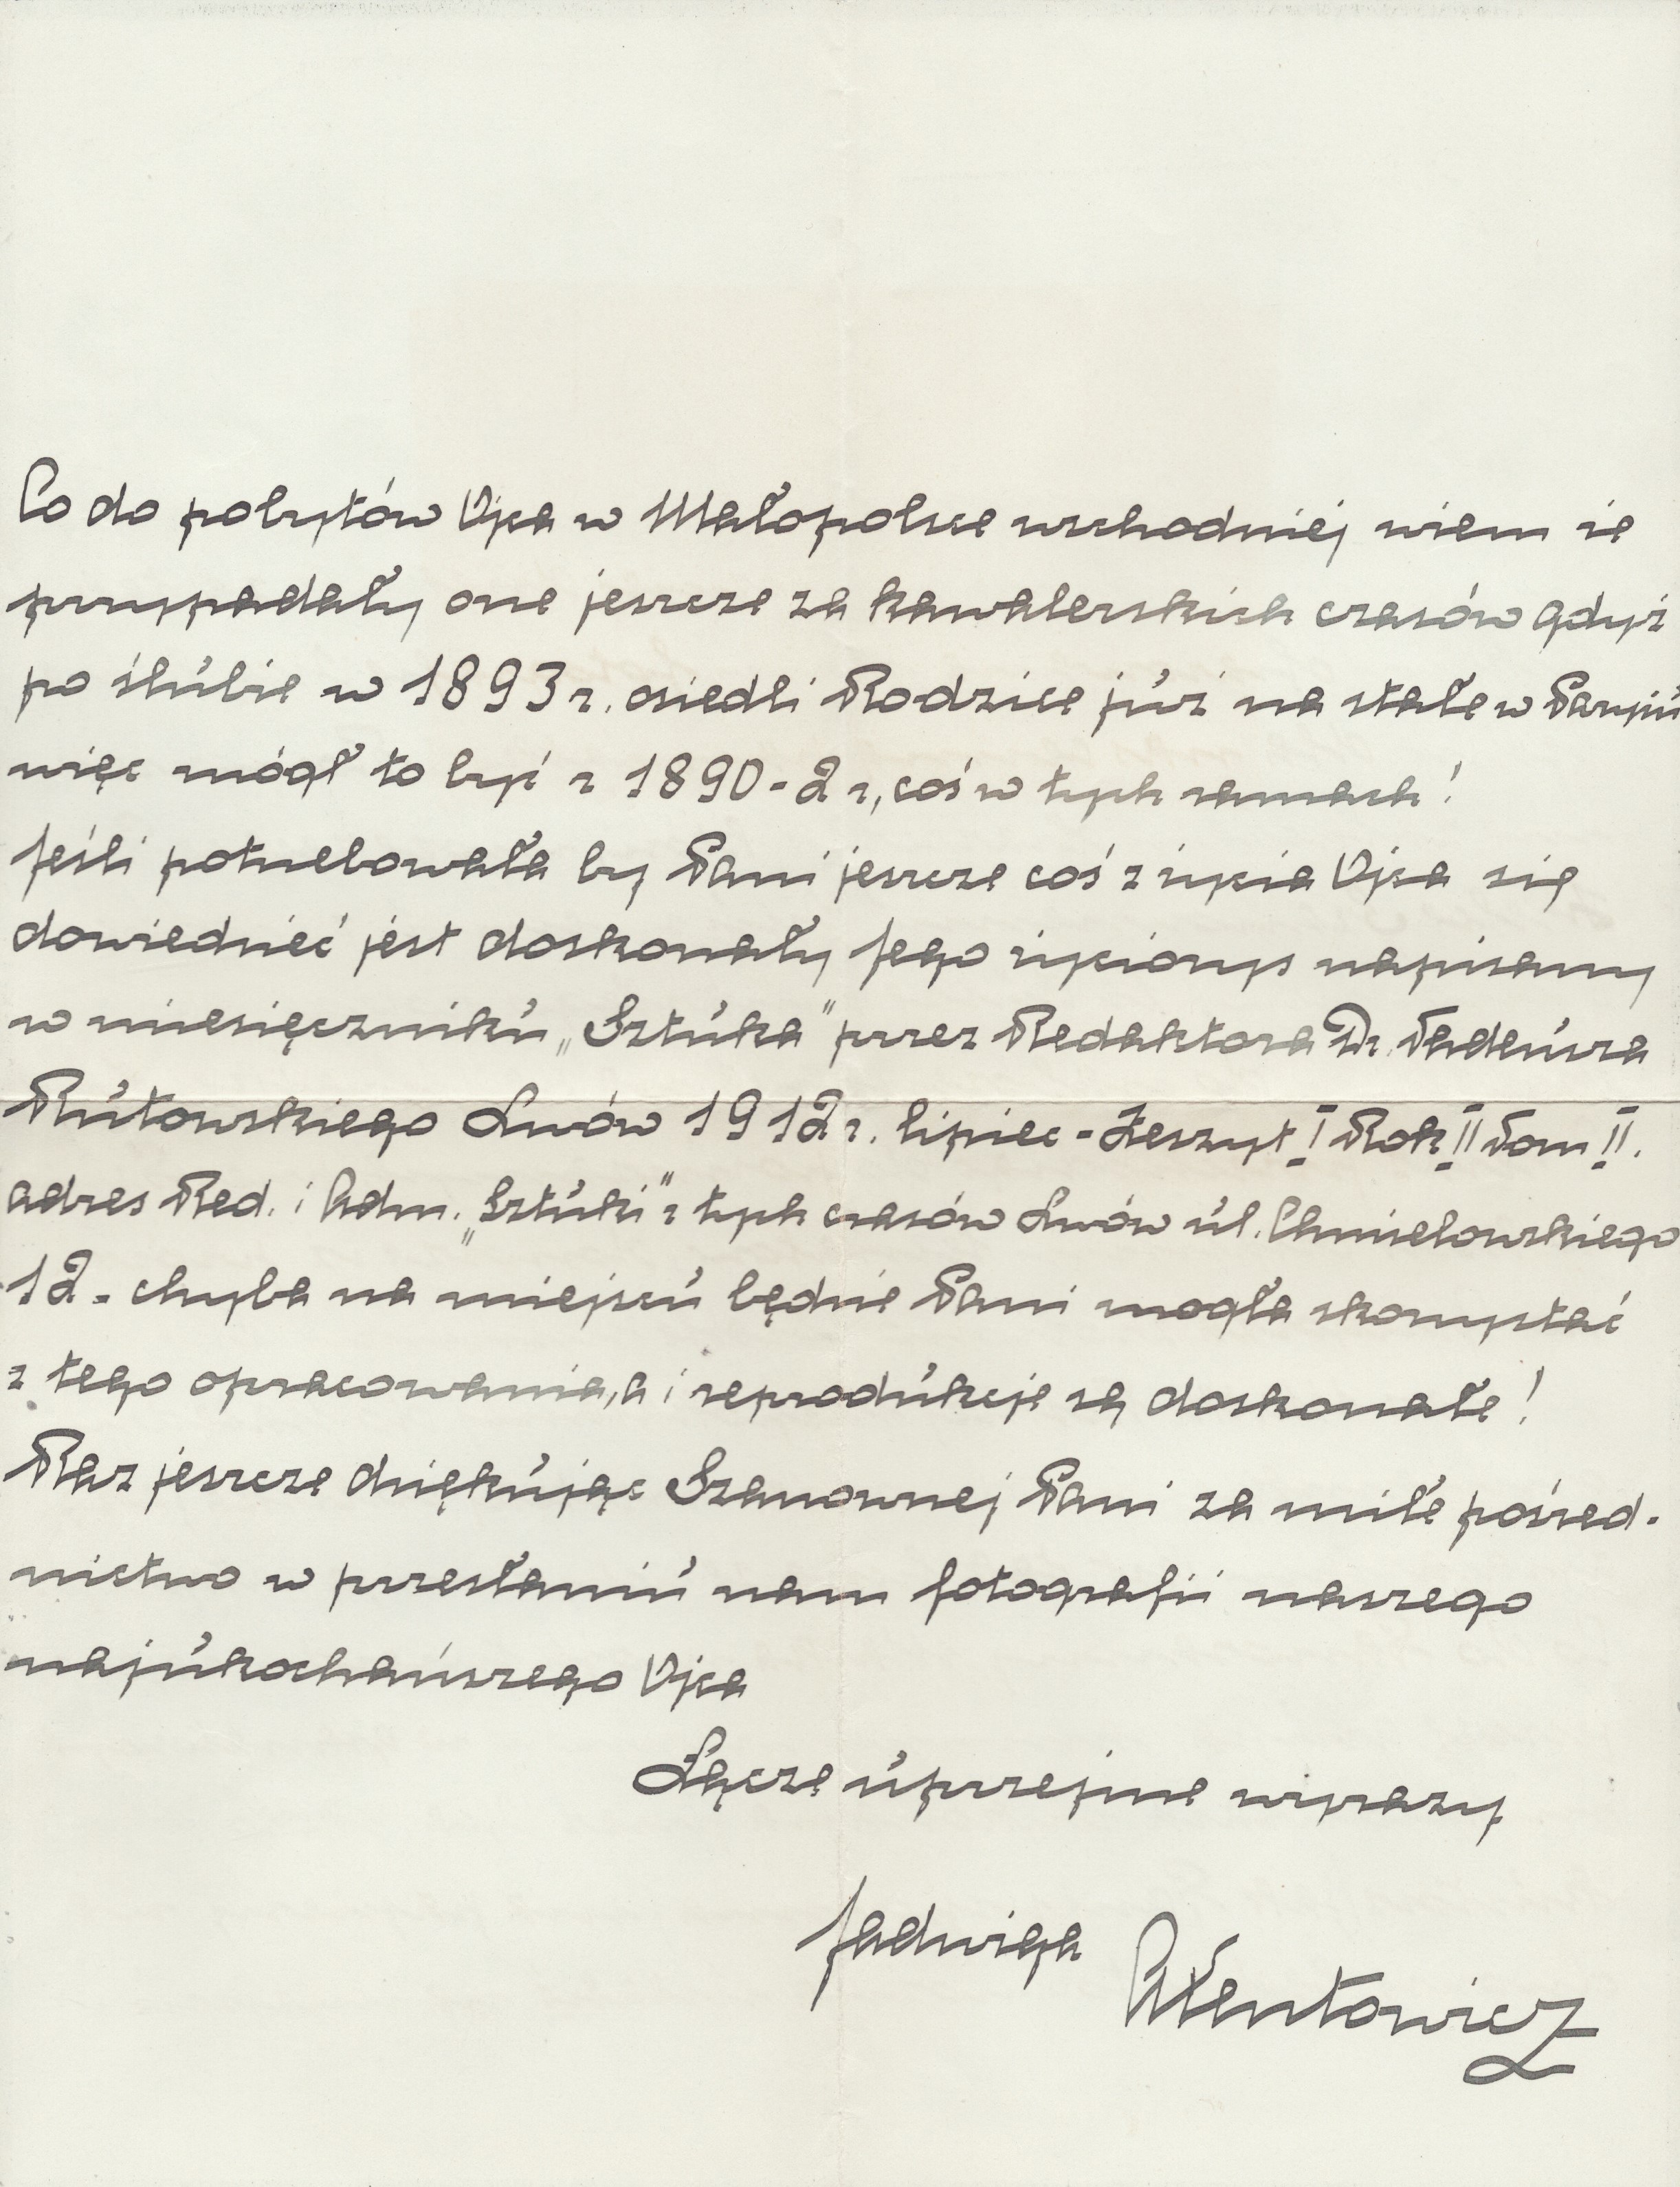 Co do pobytów Ojca w Małopolsce wschodniej wiem że
przypadały one jeszcze za kawalerskich czasów gdyż
po ślubie w 1893 r. osiedli Rodzice już na stałe w Paryżu
więc mógł to być r 1890-2 r, coś w tych ramach!
Jeśli potrzebowała by Pani jeszcze coś z życia Ojca się
dowiedzieć jest doskonały Jego życiorys napisany
w miesięczniku „Sztuka" przez Redaktora Dr. Tadeusza
Rutowskiego Lwów 1912 r. lipiec - Zeszyt I Rok II Tom II.
adres Red. i Adm. „Sztuki" z tych czasów Lwów ul. Chmielowskiego
12 - chyba na miejscu będzie Pani mogła skorzystać
z tego opracowania, a i reprodukcje są doskonałe!
Raz jeszcze dziękując Szanownej Pani za miłe pośred-
nictwo w przesłaniu nam fotografii naszego
najukochańszego Ojca
Łączę uprzejme wyrazy
Jadwiga Axentowicz